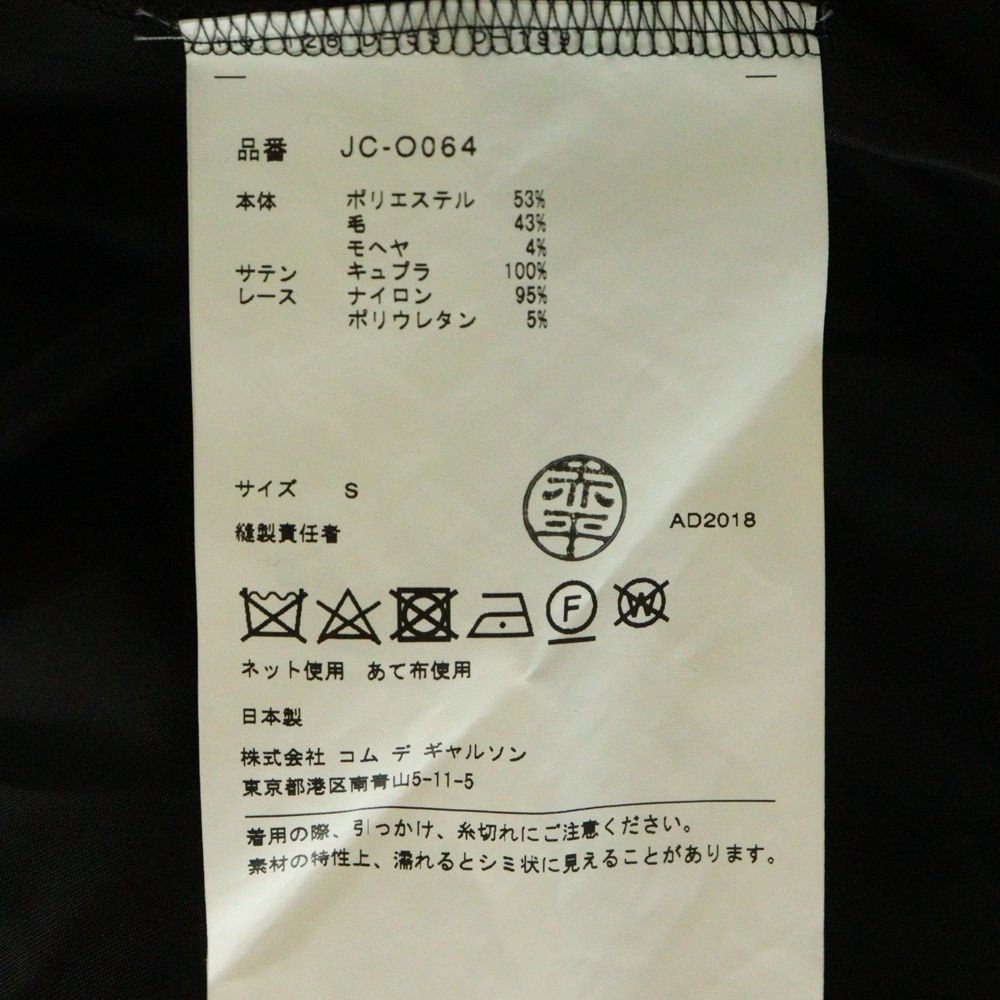 品番 JC-O064
本体 ポリエステル 53%
毛 43%
モヘヤ 4%
サテン キュプラ 100%
レース ナイロン 95%
ポリウレタン 5%
サイズ S
縫製責任者 赤平 AD2018
F W
ネット使用 あて布使用
日本製
株式会社 コム デ ギャルソン
東京都港区南青山5-11-5
着用の際、引っかけ、糸切れにご注意ください。
素材の特性上、濡れるとシミ状に見えることがあります。